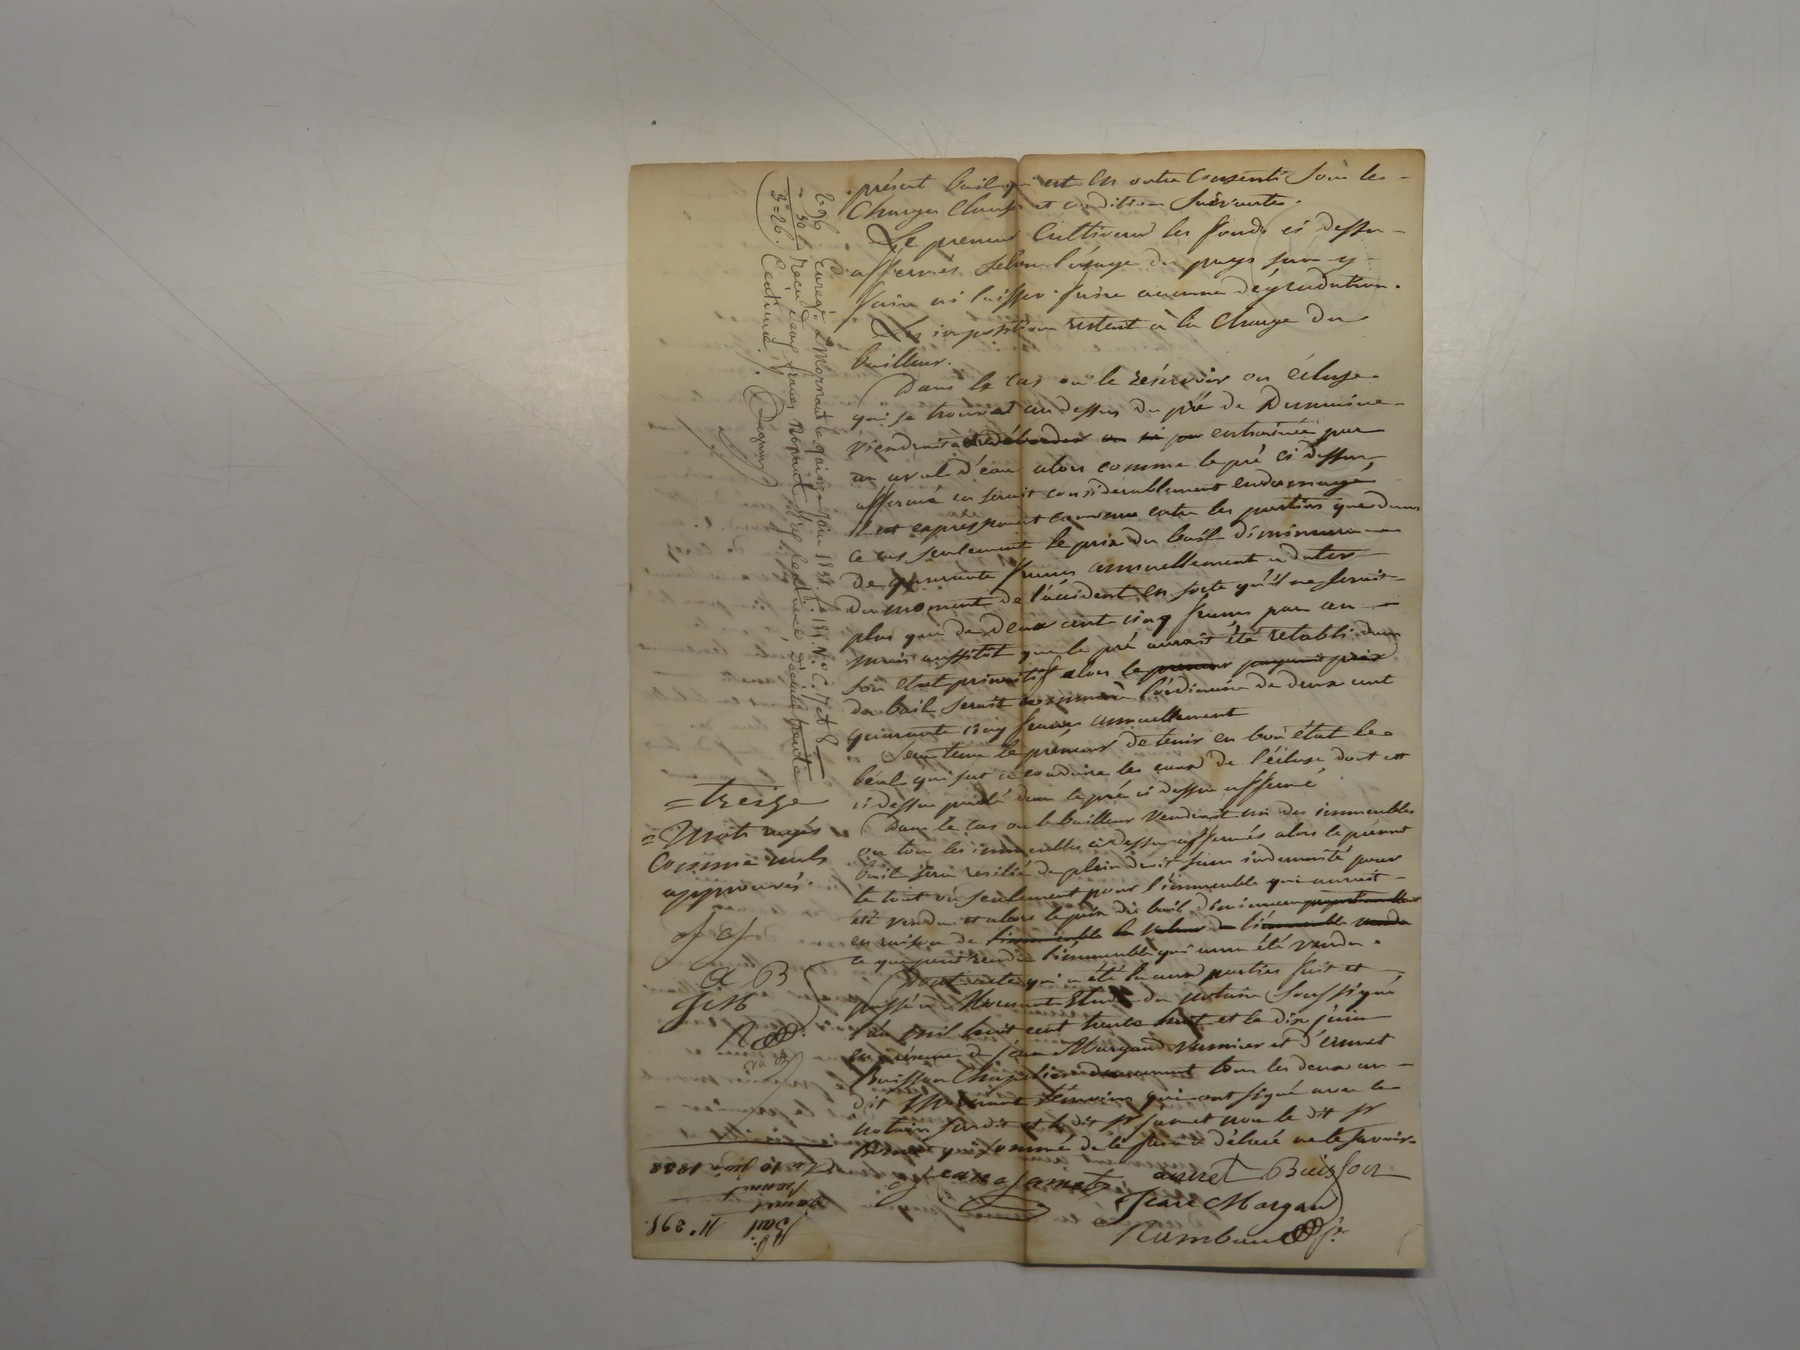 présent bail qui est en outre consenti sous les
Charges Clauses et conditions suivantes.
Le preneur Cultivera les fonds ci dessus
affermés selon l'usage du pays sans y
faire ni laisser faire aucune dégradation.
Les impositions restent à la charge du
bailleur.
Dans le cas où le réservoir ou écluse
qui se trouve au dessus du pré de
viendrait à entraînée par
un aval d'eau alors comme le pré ci dessus
affermé en serait considérablement endomagé,
il est expressement convenu entre les parties que dans
ce cas seulement le prix du bail diminuera
de quarante francs annuellement a dater
du moment de l'accident en sorte qu'il ne serait
plus que de deux cent cinq francs par an
mais aussitôt que le pré aurait été retabli dans
son etat primitif alors le preneur payerait prix
du bail serait l'ordinaire de deux cent
quarante cinq francs annuellement
Sera tenu le preneur de tenir en bon état le
béal qui sert a conduire les eaux de l'écluse dont est
ci dessus parlé dans le pré ci dessus affermé
Dans le cas ou le bailleur vendrait un des immeubles
ou tous les immeubles ci dessus affermés alors le présent
bail sera resilié de plein droit sans indemnité pour
le tout ou seulement pour l'immeuble qui aurait
été vendu et alors le prix du bail diminuera proportionnellement
en raison de l'immeuble la valeur de l'immeuble vendu
ce que peut rendre l'immeuble qui aura été vendu.
Dont acte qui a été lu aux parties fait et
passé à Mornant Etude du notaire soussigné
l'an mil huit cent trente huit et le dix juin
en présence de Jean Morgand et d'annet
Buisson Chapelier demeurant tous les deux au
dit Mornant témoins qui ont signé avec le
notaire susdit et le dit sr Jamet non le dit sr
qui sommé de le faire a déclaré ne le savoir.
Jamet annet Buisson
Jean Morgand
Rambaud
= treize
= Mots rayés
Comme nuls
approuvés.
A B
J M
R
2=96 Enregt. à Mornant le quinze Juin 1838, fo 186 Vo C. 7 et 8
30 Recu deux francs Nonante six Centimes, décime trente
3=26. Centimes.
No 298
Bail
Jamet
Du 10 juin 1838